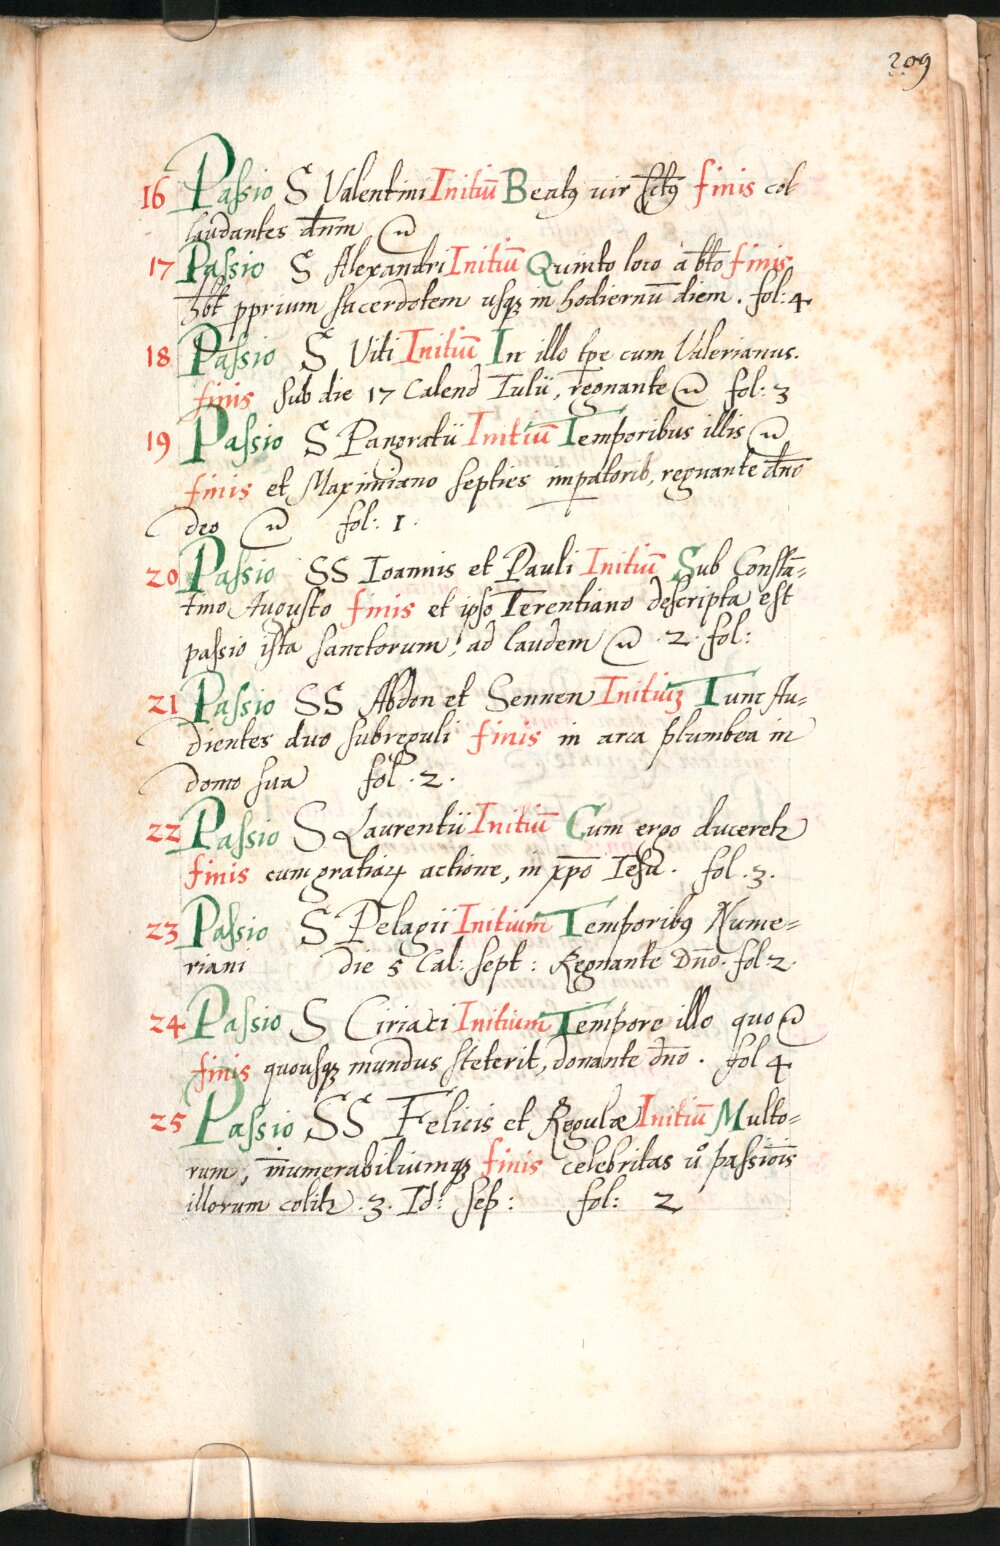 209
16 Passio S Valentini Initiū Beatꝰ uir sctꝰ finis col
laudantes dn̄m
17 Passio S Alexandri Initiū Quinto loco a bt̄o finis
hb̄t pprium sacerdotem usqꝫ in hodiernū diem. fol: 4
18 Passio S Viti Initiū In illo tp̄e cum Valerianus.
finis sub die 17 Calend Iulii, regnante fol: 3
19 Passio S Pangratii Initiū Temporibus illis
finis et Maximiano septies impatorib, regnante dn̄o
deo fol: 1.
20 Passio SS Ioannis et Pauli Initiū Sub Constā-
tino Augusto finis et ipso Terentiano descripta est
passio ista sanctorum, ad laudem .2. fol:
21 Passio SS Abdon et Sennen Initiuꝫ Tunc Au-
dientes duo subreguli finis in arca plumbea in
domo sua fol .2.
22 Passio S Laurentii Initiū Cum ergo duceretꝛ
finis cum gratiaꝝ actione, in xp̄o Iesu. fol .3.
23 Passio S Pelagii Initium Temporibꝰ Nume-
riani die 5 Cal: sept: Regnante Dn̄o. fol: 2.
24 Passio S Ciriaci Initium Tempore illo quo
finis quousqꝫ mundus steterit, donante dn̄o. fol 4
25 Passio SS Felicis et Regulæ Initiū Multo-
rum, innumerabiliumqꝫ finis celebritas uͦ passiōis
illorum colitꝛ .3. Id: sep: fol: 2